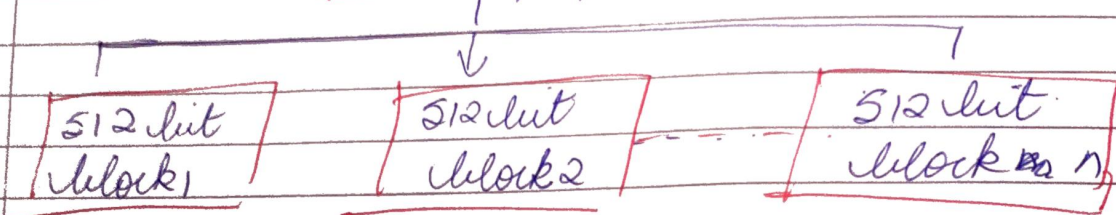 512 bit
block1
512 bit
block2
512 bit
block n